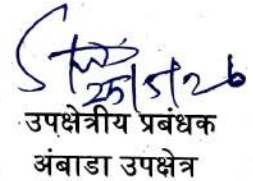 25/5/26
उपक्षेत्रीय प्रबंधक
अंबाडा उपक्षेत्र